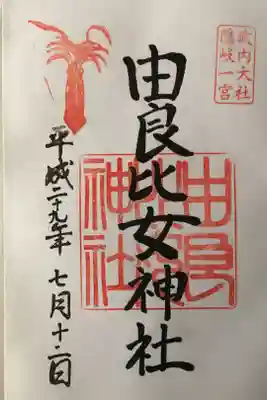 式内大社
隠岐一宮
由良比女神社
平成二十九年 七月十二日